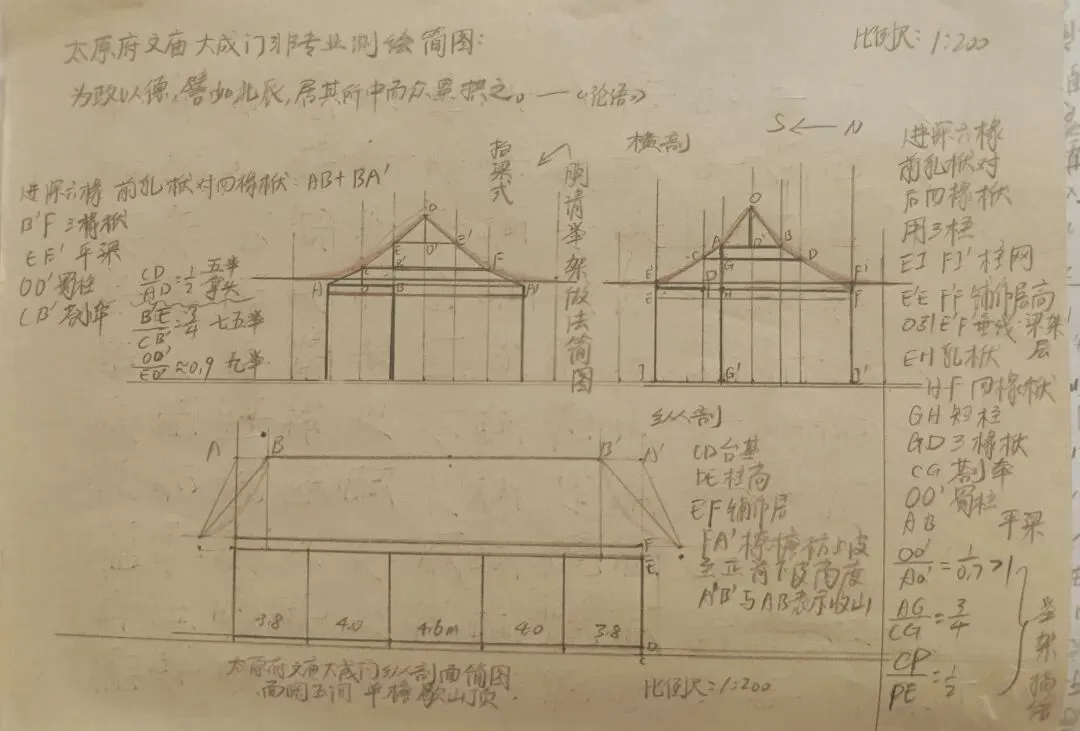 太原府文庙大成门非专业测绘简图:
比例尺:1:200
为政以德,譬如北辰,居其所中而众星拱之。——《论语》
进深六椽 前乳栿对四椽栿:AB+BA'
B'F 三椽栿
EE' 平梁
OO' 蜀柱
CB' 劄牵
CD/AD=1/2 五举
B'E/CB'=3/4 七五举
OO'/EO'≈0.9 九举
抬梁式
明清举架做法简图
O
E
O'
E'
C
B'
F
A
D
B
A'
横剖
S ← N
O
A
O'
B
C
G
D
E'
F'
E
P
H
F
I
G'
I'
进深六椽
前乳栿对
后四椽栿
用3柱
EI FI' 柱网
E'E F'F 铺作层高
O到E'F'垂线:梁架层
EH 乳栿
HF 四椽栿
GH 短柱
GD 3椽栿
CG 劄牵
OO' 蜀柱
AB 平梁
OO'/AO'=1/0.7>1
AG/CG=3/4
CP/PE=1/2
举架
纵剖
A
B
B'
A'
F
E
D
C
3.8
4.0
4.6m
4.0
3.8
CD台基
DE柱高
EF铺作层
FA' 橑檐枋上皮
至正脊下皮高度
A'B'与AB表示收山
太原府文庙大成门纵剖面简图
面阔五间 单檐歇山顶.
比例尺:1:200